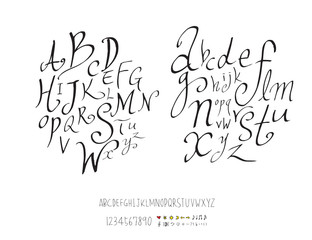 A B C D
E F G
H I J K L
M N
O P Q R S T U
V W X Y Z
a b c d e f
g h i j k l m
n o p q r s t u
v w x y z
ABCDEFGHIJKLMNOPQRSTUVWXYZ
1234567890